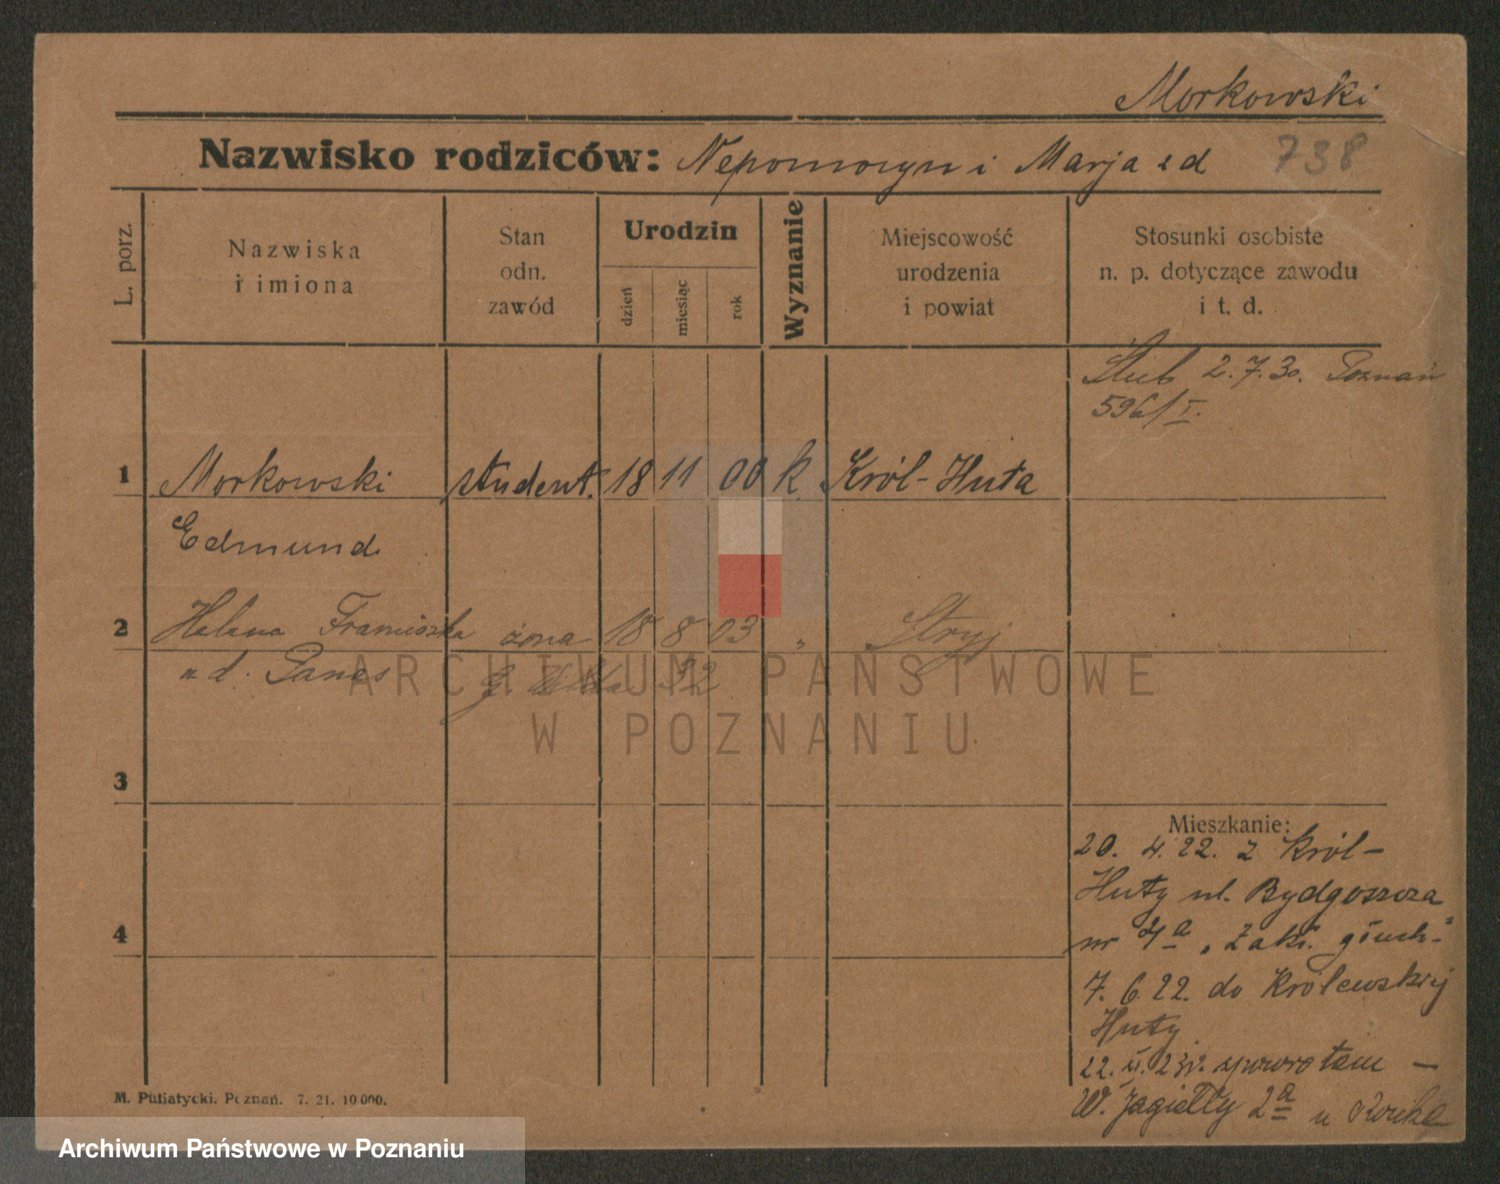 Morkowski
Nazwisko rodziców: Nepomocyn i Marja z d
738
L. porz.
Nazwiska i imiona
Stan odn. zawód
Urodzin
dzień
miesiąc
rok
Wyznanie
Miejscowość urodzenia i powiat
Stosunki osobiste n. p. dotyczące zawodu i t. d.
Ślub 2.7.30. Poznań
596/I.
1 Morkowski student. 18 11 00 k. Król-Huta
Edmund
2 Helena Franciszka żona 18 8 03 " Stryj
z d. Panes
3
4
Mieszkanie:
20. 4. 22. z Król-
Huty ul. Bydgoszcza
nr 4a "Zakł. głuch."
7. 6 22. do Królewskiej
Huty
22. 23r. spowrotem —
W. Jagiełły 2a u
M. Putiatycki. Poznań. 7. 21. 10 000.
ARCHIWUM PAŃSTWOWE
W POZNANIU
Archiwum Państwowe w Poznaniu